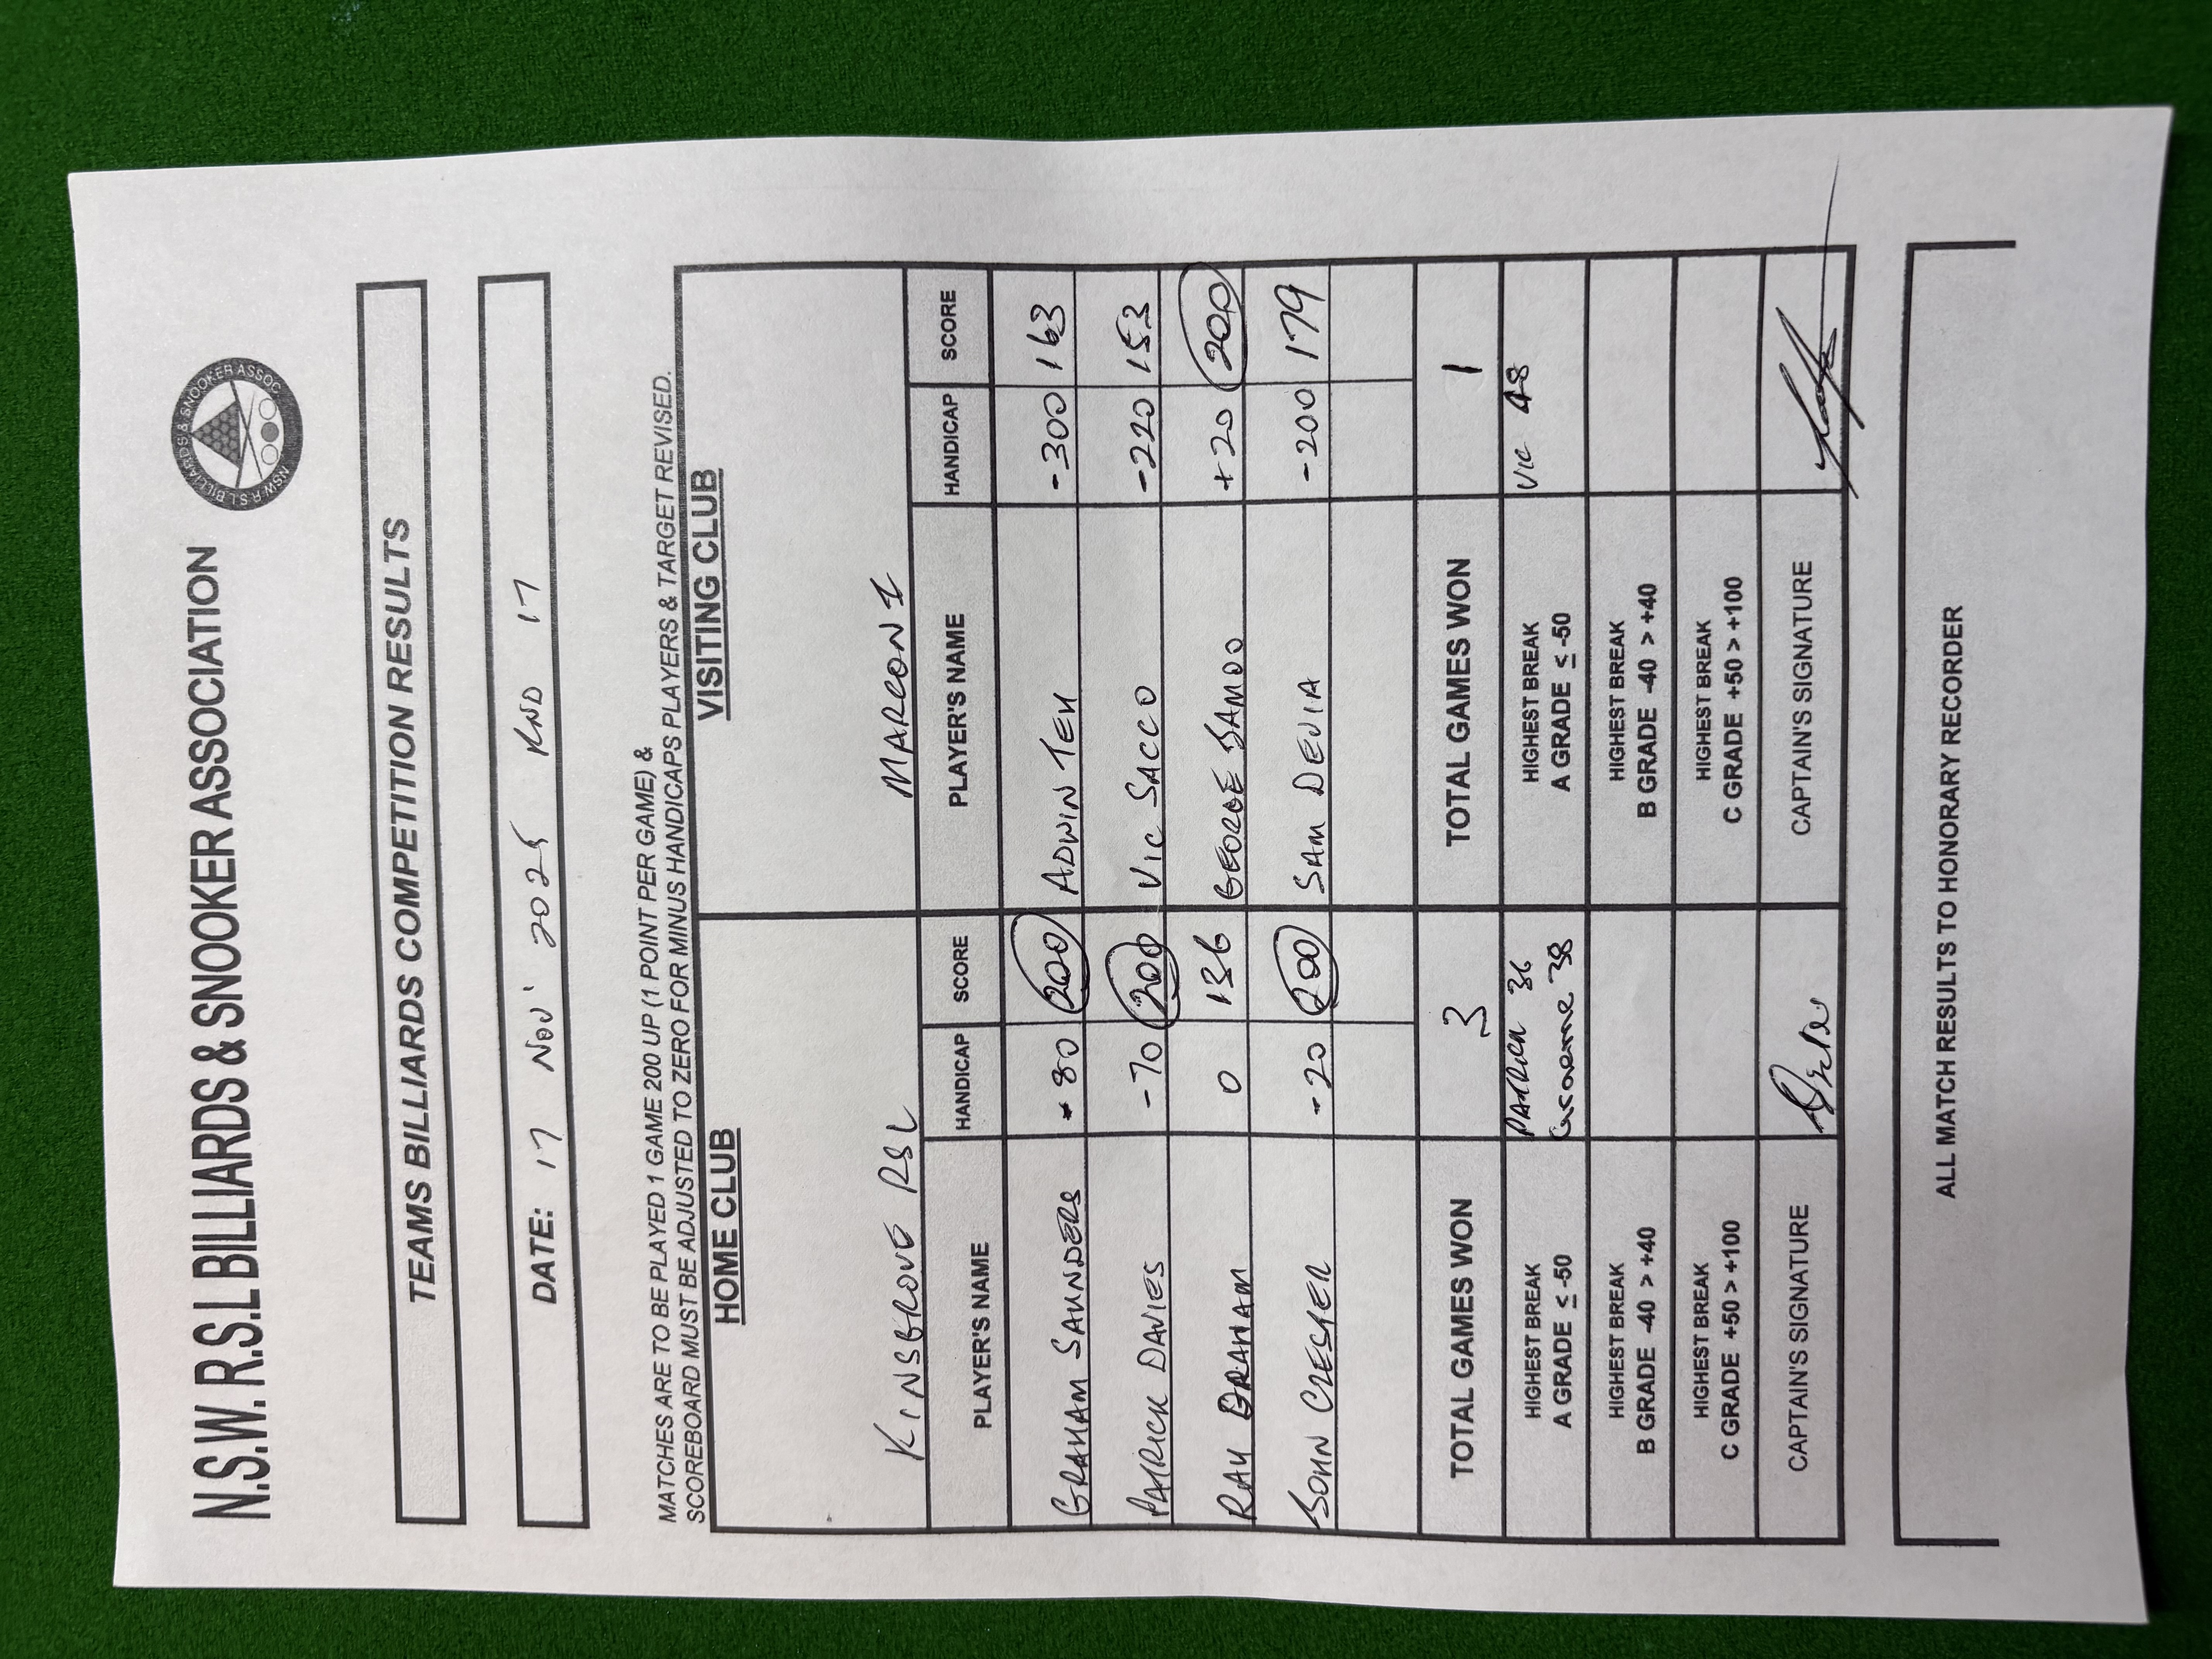 N.S.W. R.S.L BILLIARDS & SNOOKER ASSOCIATION
NSW R.S.L BILLIARDS & SNOOKER ASSOC.
TEAMS BILLIARDS COMPETITION RESULTS
DATE: 17 Nov' 2025 RND 17
MATCHES ARE TO BE PLAYED 1 GAME 200 UP (1 POINT PER GAME) &
SCOREBOARD MUST BE ADJUSTED TO ZERO FOR MINUS HANDICAPS PLAYERS & TARGET REVISED.
HOME CLUB VISITING CLUB
KINSGROVE RSL MARCONI
PLAYER'S NAME HANDICAP SCORE PLAYER'S NAME HANDICAP SCORE
GRAHAM SAUNDERS 80 200 ADWIN TEH -300 163
PATRICK DAVIES -70 200 VIC SACCO -220 153
RAY GRAHAM 0 136 GEORGE +20 200
JOHN -20 200 SAM DEVIA -200 179
TOTAL GAMES WON 3 TOTAL GAMES WON 1
HIGHEST BREAK
A GRADE ≤ -50
PATRICK 36
Graeme 38
HIGHEST BREAK
A GRADE ≤ -50
VIC 48
HIGHEST BREAK
B GRADE -40 > +40
HIGHEST BREAK
B GRADE -40 > +40
HIGHEST BREAK
C GRADE +50 > +100
HIGHEST BREAK
C GRADE +50 > +100
CAPTAIN'S SIGNATURE CAPTAIN'S SIGNATURE
ALL MATCH RESULTS TO HONORARY RECORDER